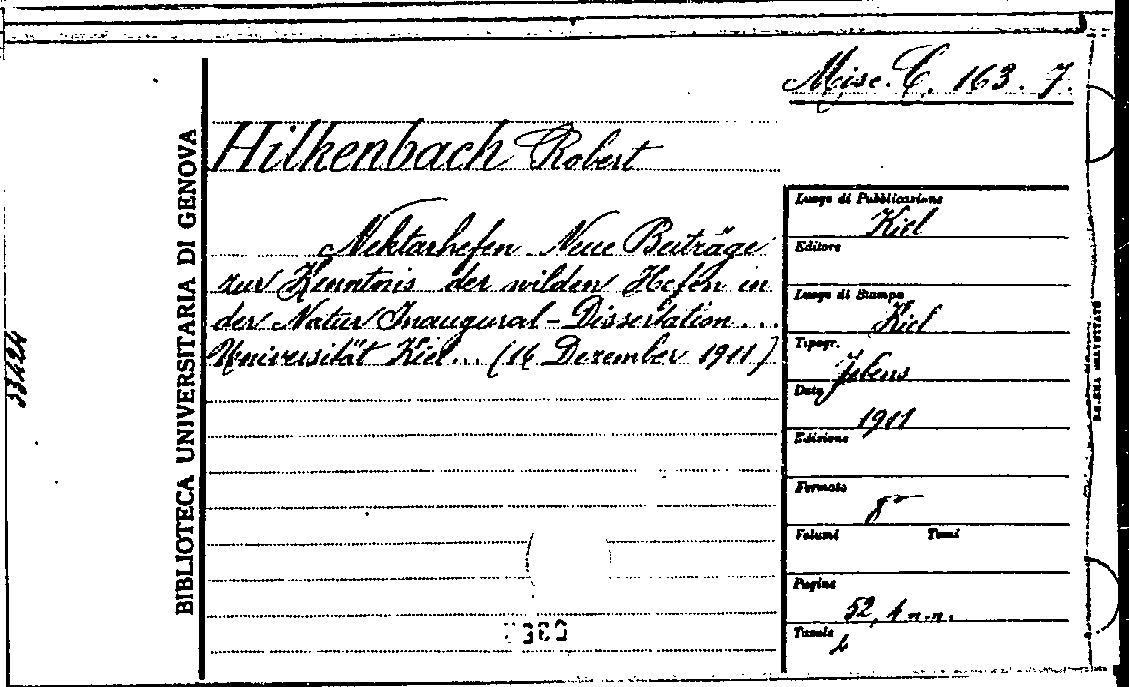 Misc. C. 163. 7.
Hilkenbach Robert
Nektarhefen. Neue Beiträge
zur Kenntnis der wilden Hefen in
der Natur Inaugural-Dissertation ...
Universität Kiel... (16 Dezember 1911)
BIBLIOTECA UNIVERSITARIA DI GENOVA
33424
Luogo di Pubblicazione
Kiel
Editore
Luogo di Stampa
Kiel
Tipogr.
Jebens
Data
1911
Edizione
Formato
8°
Volumi Tomi
Pagine
52, 4 n.n.
Tavole